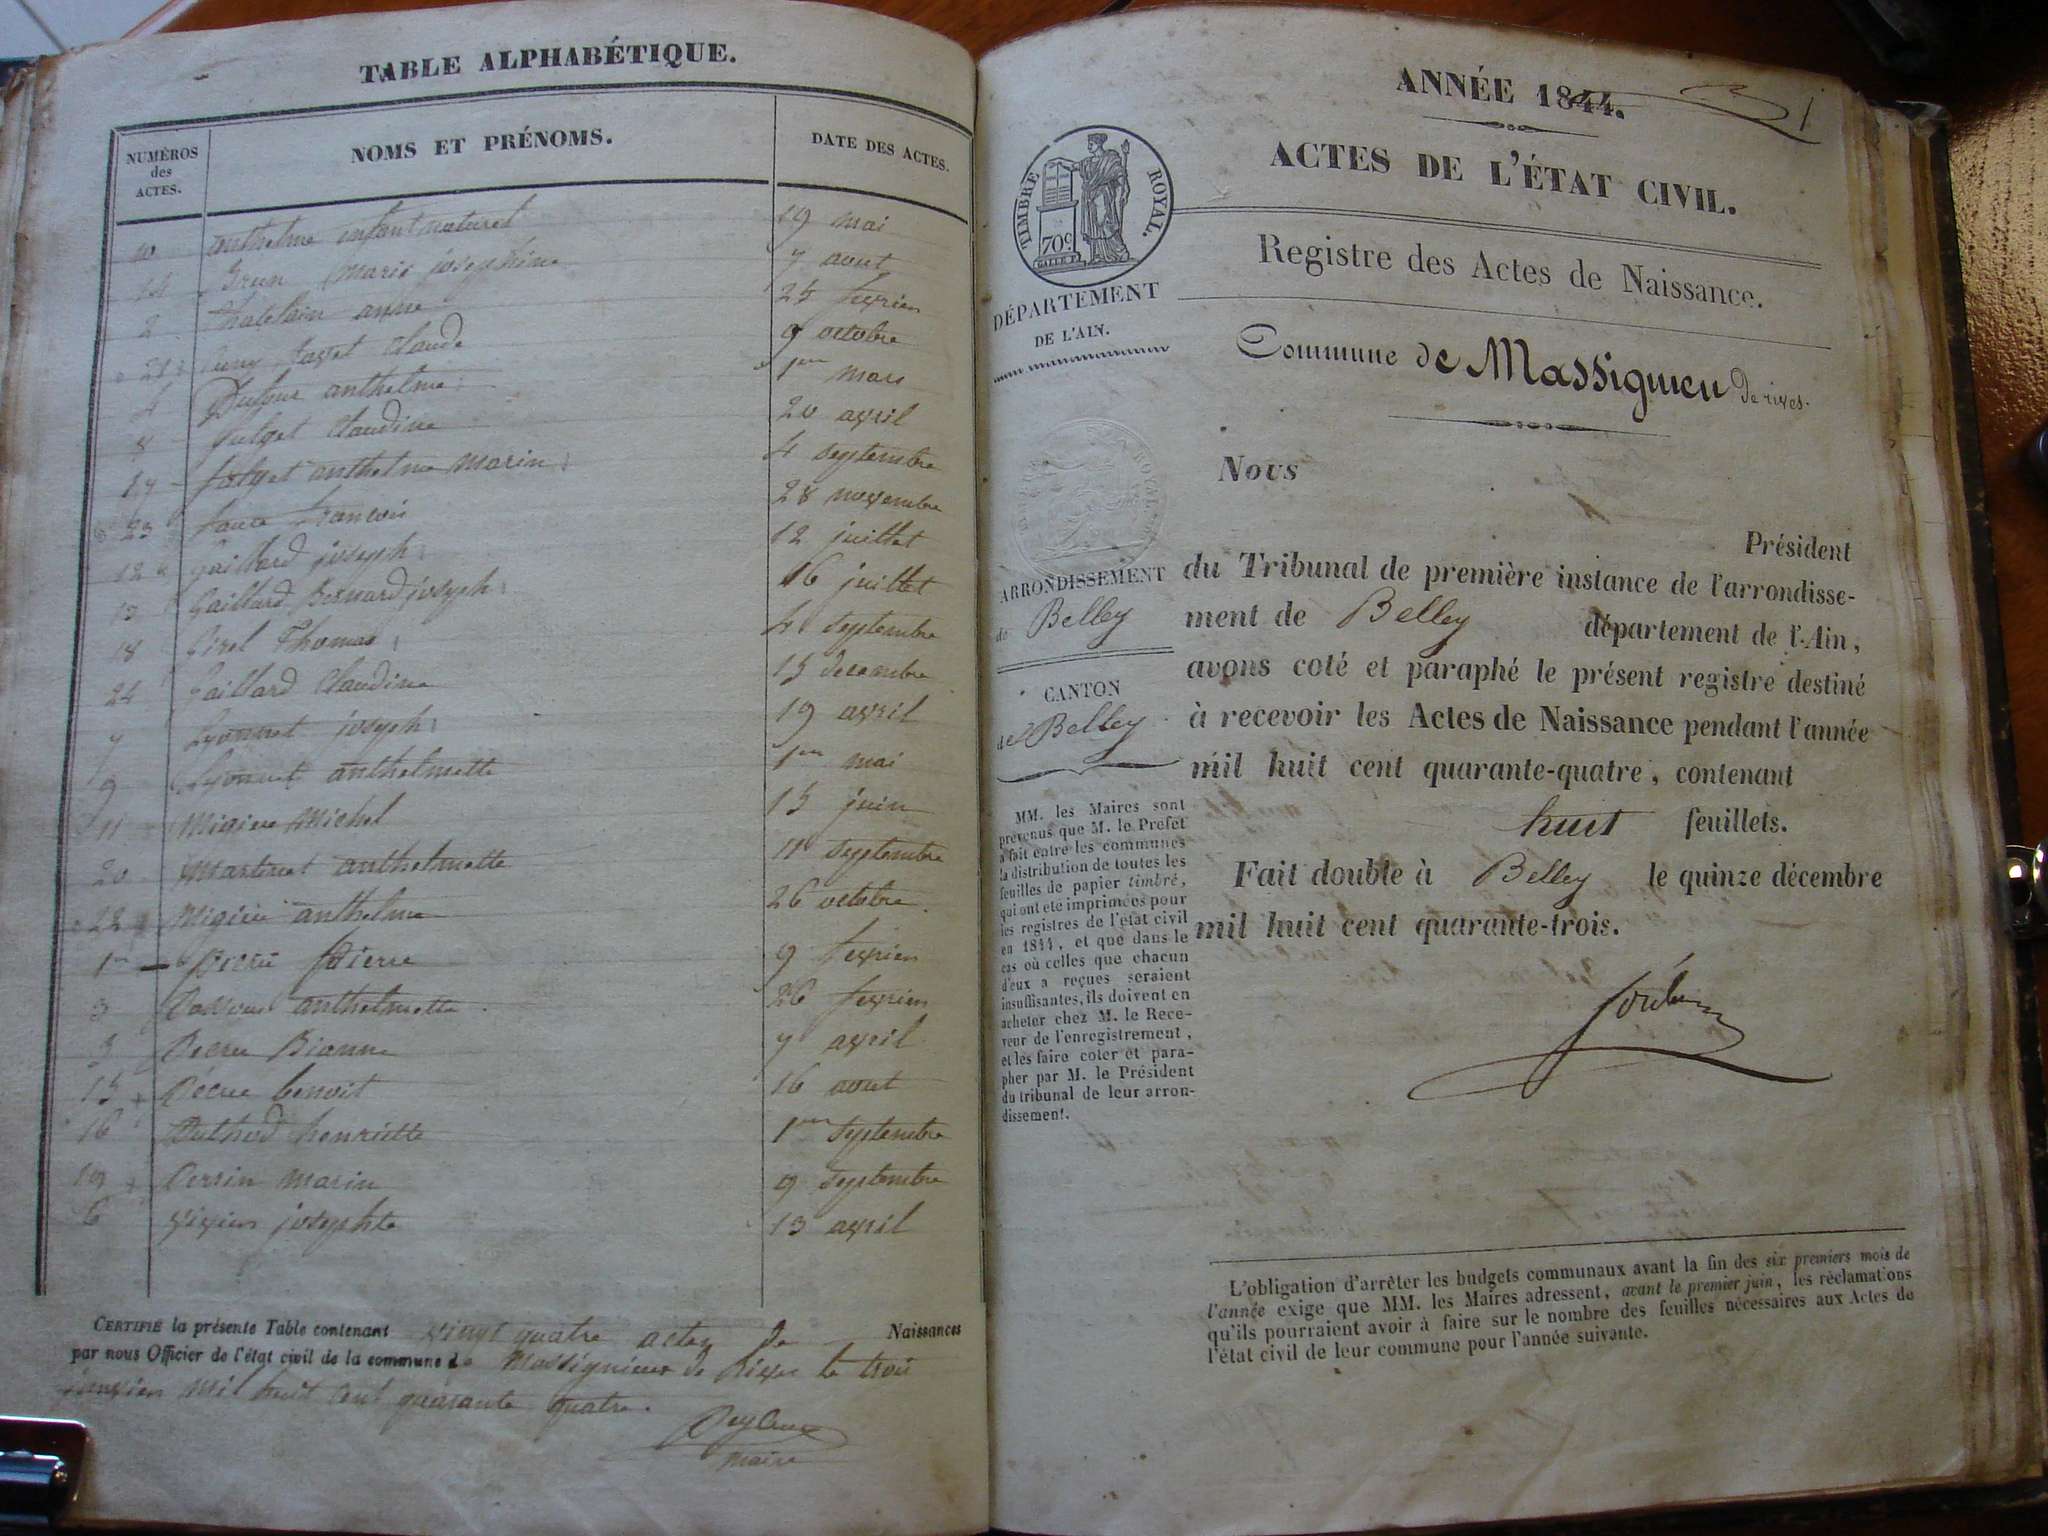 TABLE ALPHABÉTIQUE.
NUMÉROS des ACTES.
NOMS ET PRÉNOMS.
DATE DES ACTES.
10 anthelme enfant naturel 19 mai
14 Brun Marie josephine 7 aout
2 Chatelain anne 25 fevrier
21 Claude 9 octobre
4 Dufour anthelme 1er mars
8 fulget Claudine 20 avril
17 fulget anthelme Marin 4 septembre
23 françois 28 novembre
12 Gaillard joseph 12 juillet
13 Gaillard Bernard joseph 16 juillet
18 Girel Thomas 4 septembre
24 Gaillard Claudine 15 decembre
7 Lyonnet joseph 19 avril
9 Lyonnet anthelmette 1er mai
11 Migieu Michel 15 juin
20 Martinet anthelmette 11 septembre
22 Migieu anthelme 26 octobre
1er Pecru Pierre 9 fevrier
3 anthelmette 26 fevrier
5 Pecru 7 avril
15 Pécru benoit 16 aout
16 henriette 1er septembre
19 Perrin Marin 9 septembre
6 Vivier josephte 13 avril
CERTIFIÉ la présente Table contenant vingt quatre actes de Naissances
par nous Officier de l'état civil de la commune de Massignieu de Rives le trois
janvier mil huit cent quarante quatre.
Maire
ANNÉE 1844.
1
ACTES DE L'ÉTAT CIVIL.
TIMBRE ROYAL.
70c
Registre des Actes de Naissance.
DÉPARTEMENT
DE L'AIN.
Commune de Massignieu de rives.
Nous
Président
du Tribunal de première instance de l'arrondisse-
ment de Belley département de l'Ain,
avons coté et paraphé le présent registre destiné
à recevoir les Actes de Naissance pendant l'année
mil huit cent quarante-quatre, contenant
huit feuillets.
Fait double à Belley le quinze décembre
mil huit cent quarante-trois.
ARRONDISSEMENT
de Belley
CANTON
de Belley
MM. les Maires sont
prévenus que M. le Préfet
a fait entre les communes
la distribution de toutes les
feuilles de papier timbré,
qui ont été imprimées pour
les registres de l'état civil
en 1844, et que dans le
cas où celles que chacun
d'eux a reçues seraient
insuffisantes, ils doivent en
acheter chez M. le Rece-
veur de l'enregistrement,
et les faire coter et para-
pher par M. le Président
du tribunal de leur arron-
dissement.
L'obligation d'arrêter les budgets communaux avant la fin des six premiers mois de
l'année exige que MM. les Maires adressent, avant le premier juin, les réclamations
qu'ils pourraient avoir à faire sur le nombre des feuilles nécessaires aux Actes de
l'état civil de leur commune pour l'année suivante.